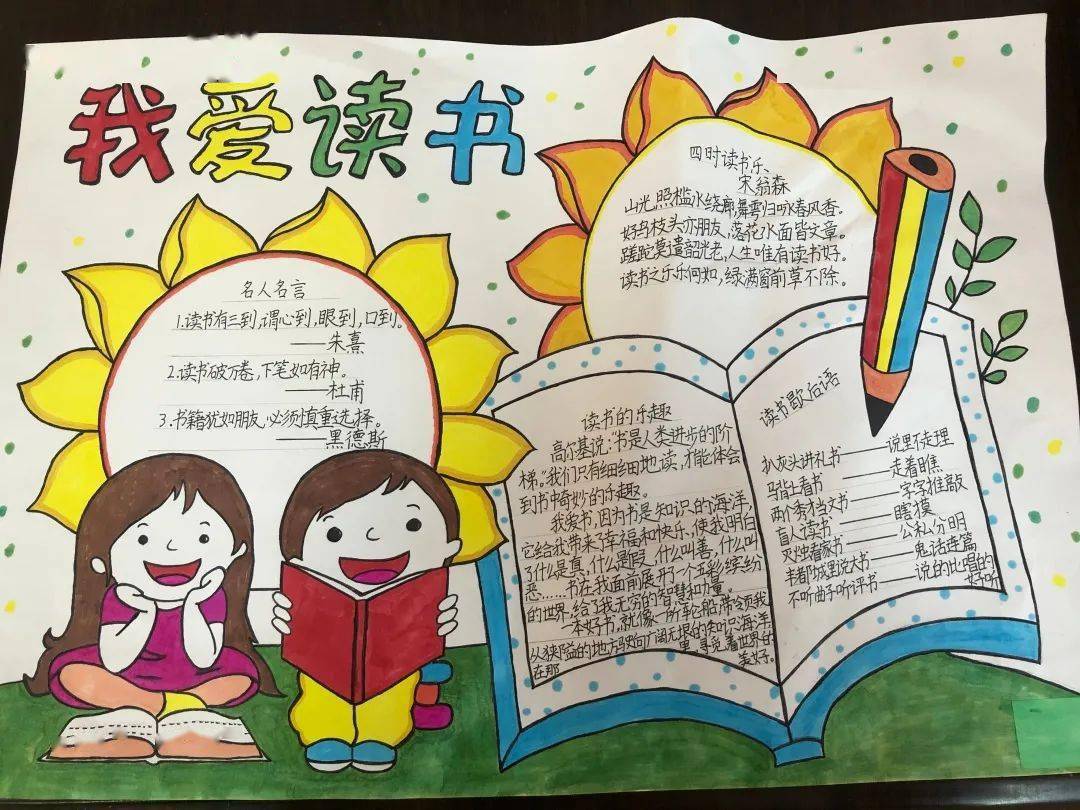 我爱读书
名人名言
1.读书有三到,谓心到,眼到,口到。
——朱熹
2.读书破万卷,下笔如有神。
——杜甫
3.书籍犹如朋友,必须慎重选择。
——黑德斯
四时读书乐、
宋翁森
山光照槛水绕廊,舞雩归咏春风香。
好鸟枝头亦朋友,落花水面皆文章。
蹉跎莫遣韶光老,人生唯有读书好。
读书之乐乐何如,绿满窗前草不除。
读书的乐趣
高尔基说:“书是人类进步的阶
梯。”我们只有细细地读,才能体会
到书中奇妙的乐趣。
我爱书,因为书是知识的海洋,
它给我带来了幸福和快乐,使我明白
了什么是真,什么是假,什么叫善,什么叫
恶……书在我面前展开一个五彩缤纷
的世界,给了我无穷的智慧和力量。
一本好书,就像一所轮船,带领我
从狭隘的地方驶向广阔无垠的知识海洋
在那里,寻觅着世界的
美好。
读书歇后语
扒灰头讲礼书——说里不走理
马背上看书——走着瞧
两个秀才当文书——字字推敲
盲人读书——瞎摸
灭烛看家书——公私分明
丰都城里说大书——鬼话连篇
不听曲子听评书——说的比唱的
好听